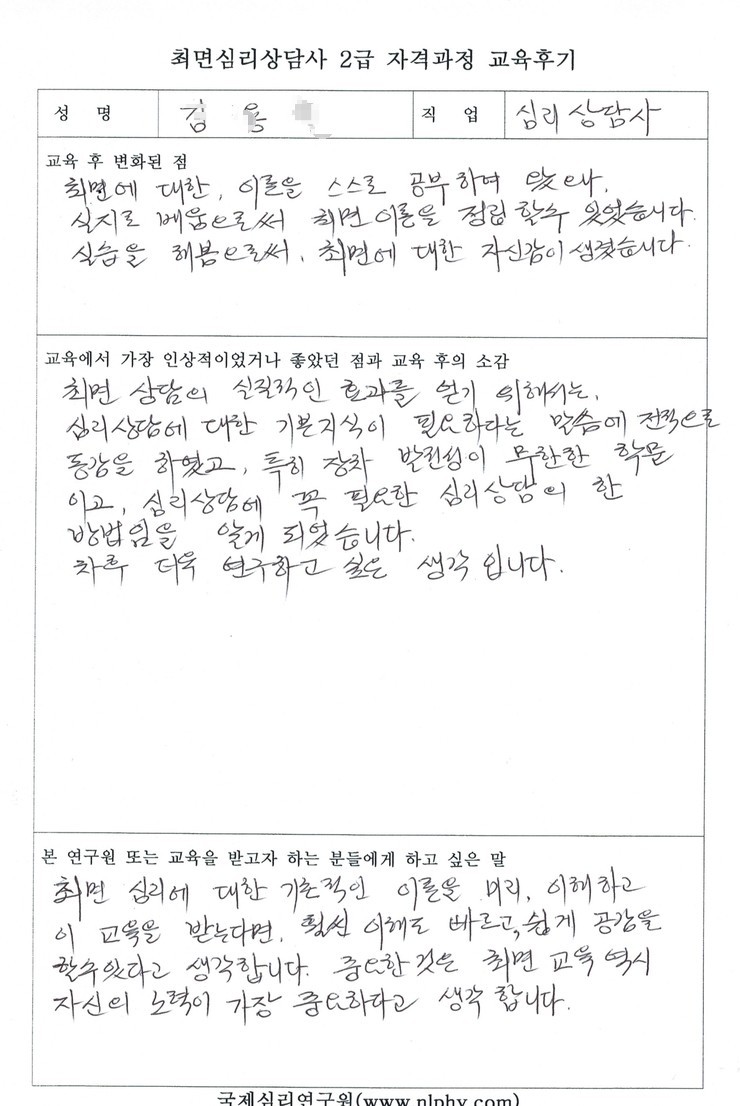 최면심리상담사 2급 자격과정 교육후기
성 명 김 용 직 업 심리 상담사
교육 후 변화된 점
최면에 대한, 이론을 스스로 공부하여 왔으나,
실지로 배움으로써 최면이론을 정립 할수 있었습니다.
실습을 해봄으로써, 최면에 대한 자신감이 생겼습니다.
교육에서 가장 인상적이었거나 좋았던 점과 교육 후의 소감
최면 상담의 실질적인 효과를 얻기 위해서는,
심리상담에 대한 기본지식이 필요하다는 말씀에 전적으로
동감을 하였고, 특히 장차 발전성이 무한한 학문
이고, 심리상담에 꼭 필요한 심리상담의 한
방법임을 알게 되었습니다.
차후 더욱 연구하고 싶은 생각 입니다.
본 연구원 또는 교육을 받고자 하는 분들에게 하고 싶은 말
최면 심리에 대한 기초적인 이론을 미리, 이해하고
이 교육을 받는다면, 훨씬 이해도 빠르고, 쉽게 공감을
할수있다고 생각합니다. 중요한것은 최면 교육 역시
자신의 노력이 가장 중요하다고 생각 합니다.
국제심리연구원(www.nlphy.com)